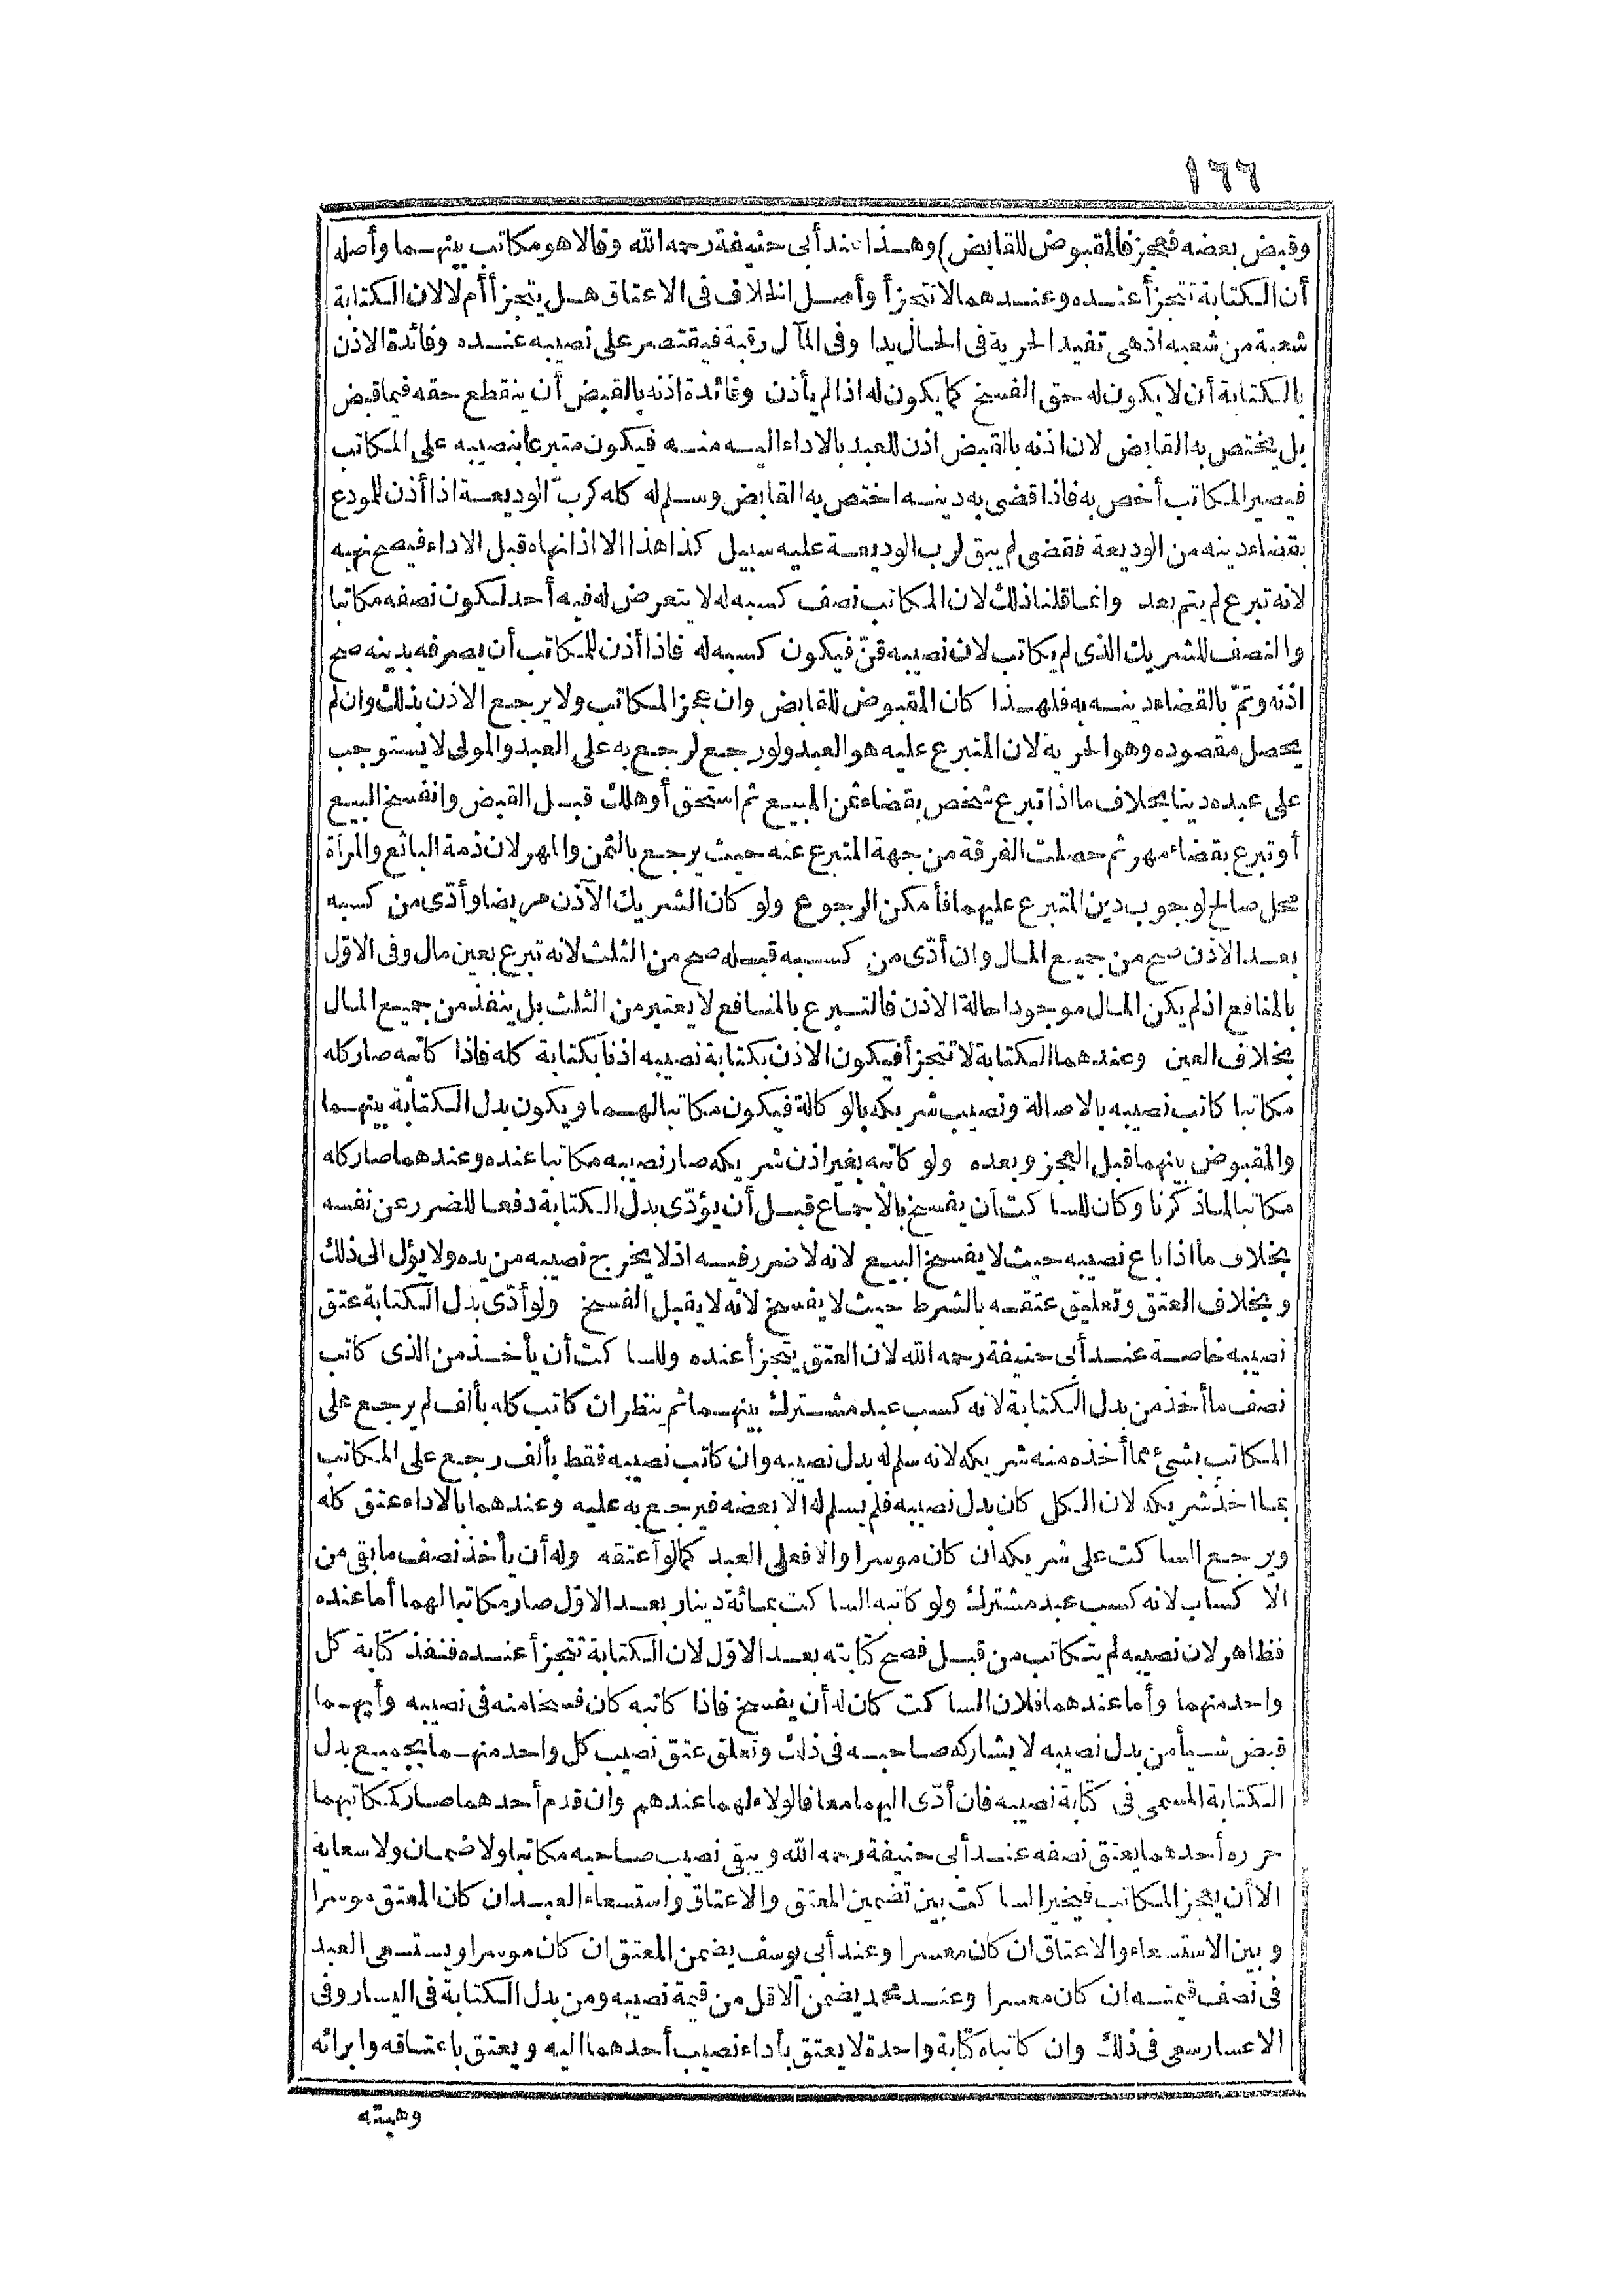 ١٦٦
وقبض بعضه فعجز فالمقبوض للقابض) وهذا عند أبى حنيفة رحمه الله وقالا هو مكاتب بينهما وأصله
أن الكتابة تتجزأ عنده وعندهما لا تتجزأ وأصل الخلاف فى الاعتاق هل يتجزأ أم لا لان الكتابة
شعبة من شعبه اذ هى تفيد الحرية فى الحال يدا وفى المآل رقبة فيقتصر على نصيبه عنده وفائدة الاذن
بالكتابة أن لا يكون له حق الفسخ كما يكون له اذا لم يأذن وفائدة اذنه بالقبض أن ينقطع حقه فيما قبض
بل يختص به القابض لان اذنه بالقبض اذن للعبد بالاداء اليه منه فيكون متبرعا بنصيبه على المكاتب
فيصير المكاتب أخص به فاذا قضى به دينه اختص به القابض وسلم له كله كربّ الوديعة اذا أذن للمودع
بقضاء دينه من الوديعة فقضى لم يبق لرب الوديعة عليه سبيل كذا هذا الا اذا نهاه قبل الاداء فيصح نهيه
لانه تبرع لم يتم بعد وانما قلنا ذلك لان المكاتب نصف كسبه له لا يتعرض له فيه أحد لكون نصفه مكاتبا
والنصف للشريك الذى لم يكاتب لان نصيبه قنّ فيكون كسبه له فاذا أذن للمكاتب أن يصرفه بدينه صح
اذنه وتمّ بالقضاء دينه به فلهذا كان المقبوض للقابض وان عجز المكاتب ولا يرجع الاذن بذلك وان لم
يحصل مقصوده وهو الحرية لان المتبرع عليه هو العبد ولو رجع لرجع به على العبد والمولى لا يستوجب
على عبده دينا بخلاف ما اذا تبرع شخص بقضاء ثمن المبيع ثم استحق أو هلك قبل القبض وانفسخ البيع
أو تبرع بقضاء مهر ثم حصلت الفرقة من جهة المتبرع عنه حيث يرجع بالثمن والمهر لان ذمة البائع والمرأة
محل صالح لوجوب دين المتبرع عليهما فأمكن الرجوع ولو كان الشريك الآذن مريضا وأدّى من كسبه
بعد الاذن صح من جميع المال وان أدّى من كسبه قبله صح من الثلث لانه تبرع بعين مال وفى الاوّل
بالمنافع اذ لم يكن المال موجودا حالة الاذن فالتبرع بالمنافع لا يعتبر من الثلث بل ينفذ من جميع المال
بخلاف العين وعندهما الكتابة لا تتجزأ فيكون الاذن بكتابة نصيبه اذنا بكتابة كله فاذا كاتبه صار كله
مكاتبا كاتب نصيبه بالاصالة ونصيب شريكه بالوكالة فيكون مكاتبا لهما ويكون بدل الكتابة بينهما
والمقبوض بينهما قبل العجز وبعده ولو كاتبه بغير اذن شريكه صار نصيبه مكاتبا عنده وعندهما صار كله
مكاتبا لماذكرنا وكان للساكت أن يفسخ بالاجماع قبل أن يؤدّى بدل الكتابة دفعا للضرر عن نفسه
بخلاف ما اذا باع نصيبه حيث لا يفسخ البيع لانه لا ضرر فيه اذ لا يخرج نصيبه من يده ولا يؤل الى ذلك
وبخلاف العتق وتعليق عتقه بالشرط حيث لا يفسخ لانه لا يقبل الفسخ ولو أدّى بدل الكتابة عتق
نصيبه خاصة عند أبى حنيفة رحمه الله لان العتق يتجزأ عنده وللساكت أن يأخذ من الذى كاتب
نصف ما أخذ من بدل الكتابة لانه كسب عبد مشترك بينهما ثم ينظر ان كاتب كله بألف لم يرجع على
المكاتب بشئ مما أخذه منه شريكه لانه سلم له بدل نصيبه وان كاتب نصيبه فقط بألف رجع على المكاتب
بما اخذ شريكه لان الكل كان بدل نصيبه فلم يسلم له الا بعضه فيرجع به عليه وعندهما بالاداء عتق كله
ويرجع الساكت على شريكه ان كان موسرا والا فعلى العبد كما لو أعتقه وله أن يأخذ نصف ما بقى من
الاكساب لانه كسب عبد مشترك ولو كاتبه الساكت بمائة دينار بعد الاوّل صار مكاتبا لهما أما عنده
فظاهر لان نصيبه لم يتكاتب من قبل فصح كتابته بعد الاوّل لان الكتابة تتجزأ عنده فنفذ كتابة كل
واحد منهما وأما عندهما فلان الساكت كان له أن يفسخ فاذا كاتبه كان فسخا منه فى نصيبه وأيهما
قبض شيأ من بدل نصيبه لا يشاركه صاحبه فى ذلك وتعلق عتق نصيب كل واحد منهما بجميع بدل
الكتابة المسمى فى كتابة نصيبه فان أدّى اليهما معا فالولاء لهما عندهم وان قدم أحدهما صار ككاتبهما
حرره أحدهما يعتق نصفه عند أبى حنيفة رحمه الله ويبقى نصيب صاحبه مكاتبا ولا ضمان ولا سعاية
الا أن يعجز المكاتب فيخير الساكت بين تضمين المعتق والاعتاق واستسعاء العبد ان كان المعتق موسرا
وبين الاستسعاء والاعتاق ان كان معسرا وعند أبى يوسف يضمن المعتق ان كان موسرا ويستسعى العبد
فى نصف قيمته ان كان معسرا وعند محمد يضمن الاقل من قيمة نصيبه ومن بدل الكتابة فى اليسار وفى
الاعسار سعى فى ذلك وان كاتباه كتابة واحدة لا يعتق بأداء نصيب أحدهما اليه ويعتق باعتاقه وابرائه
وهبته